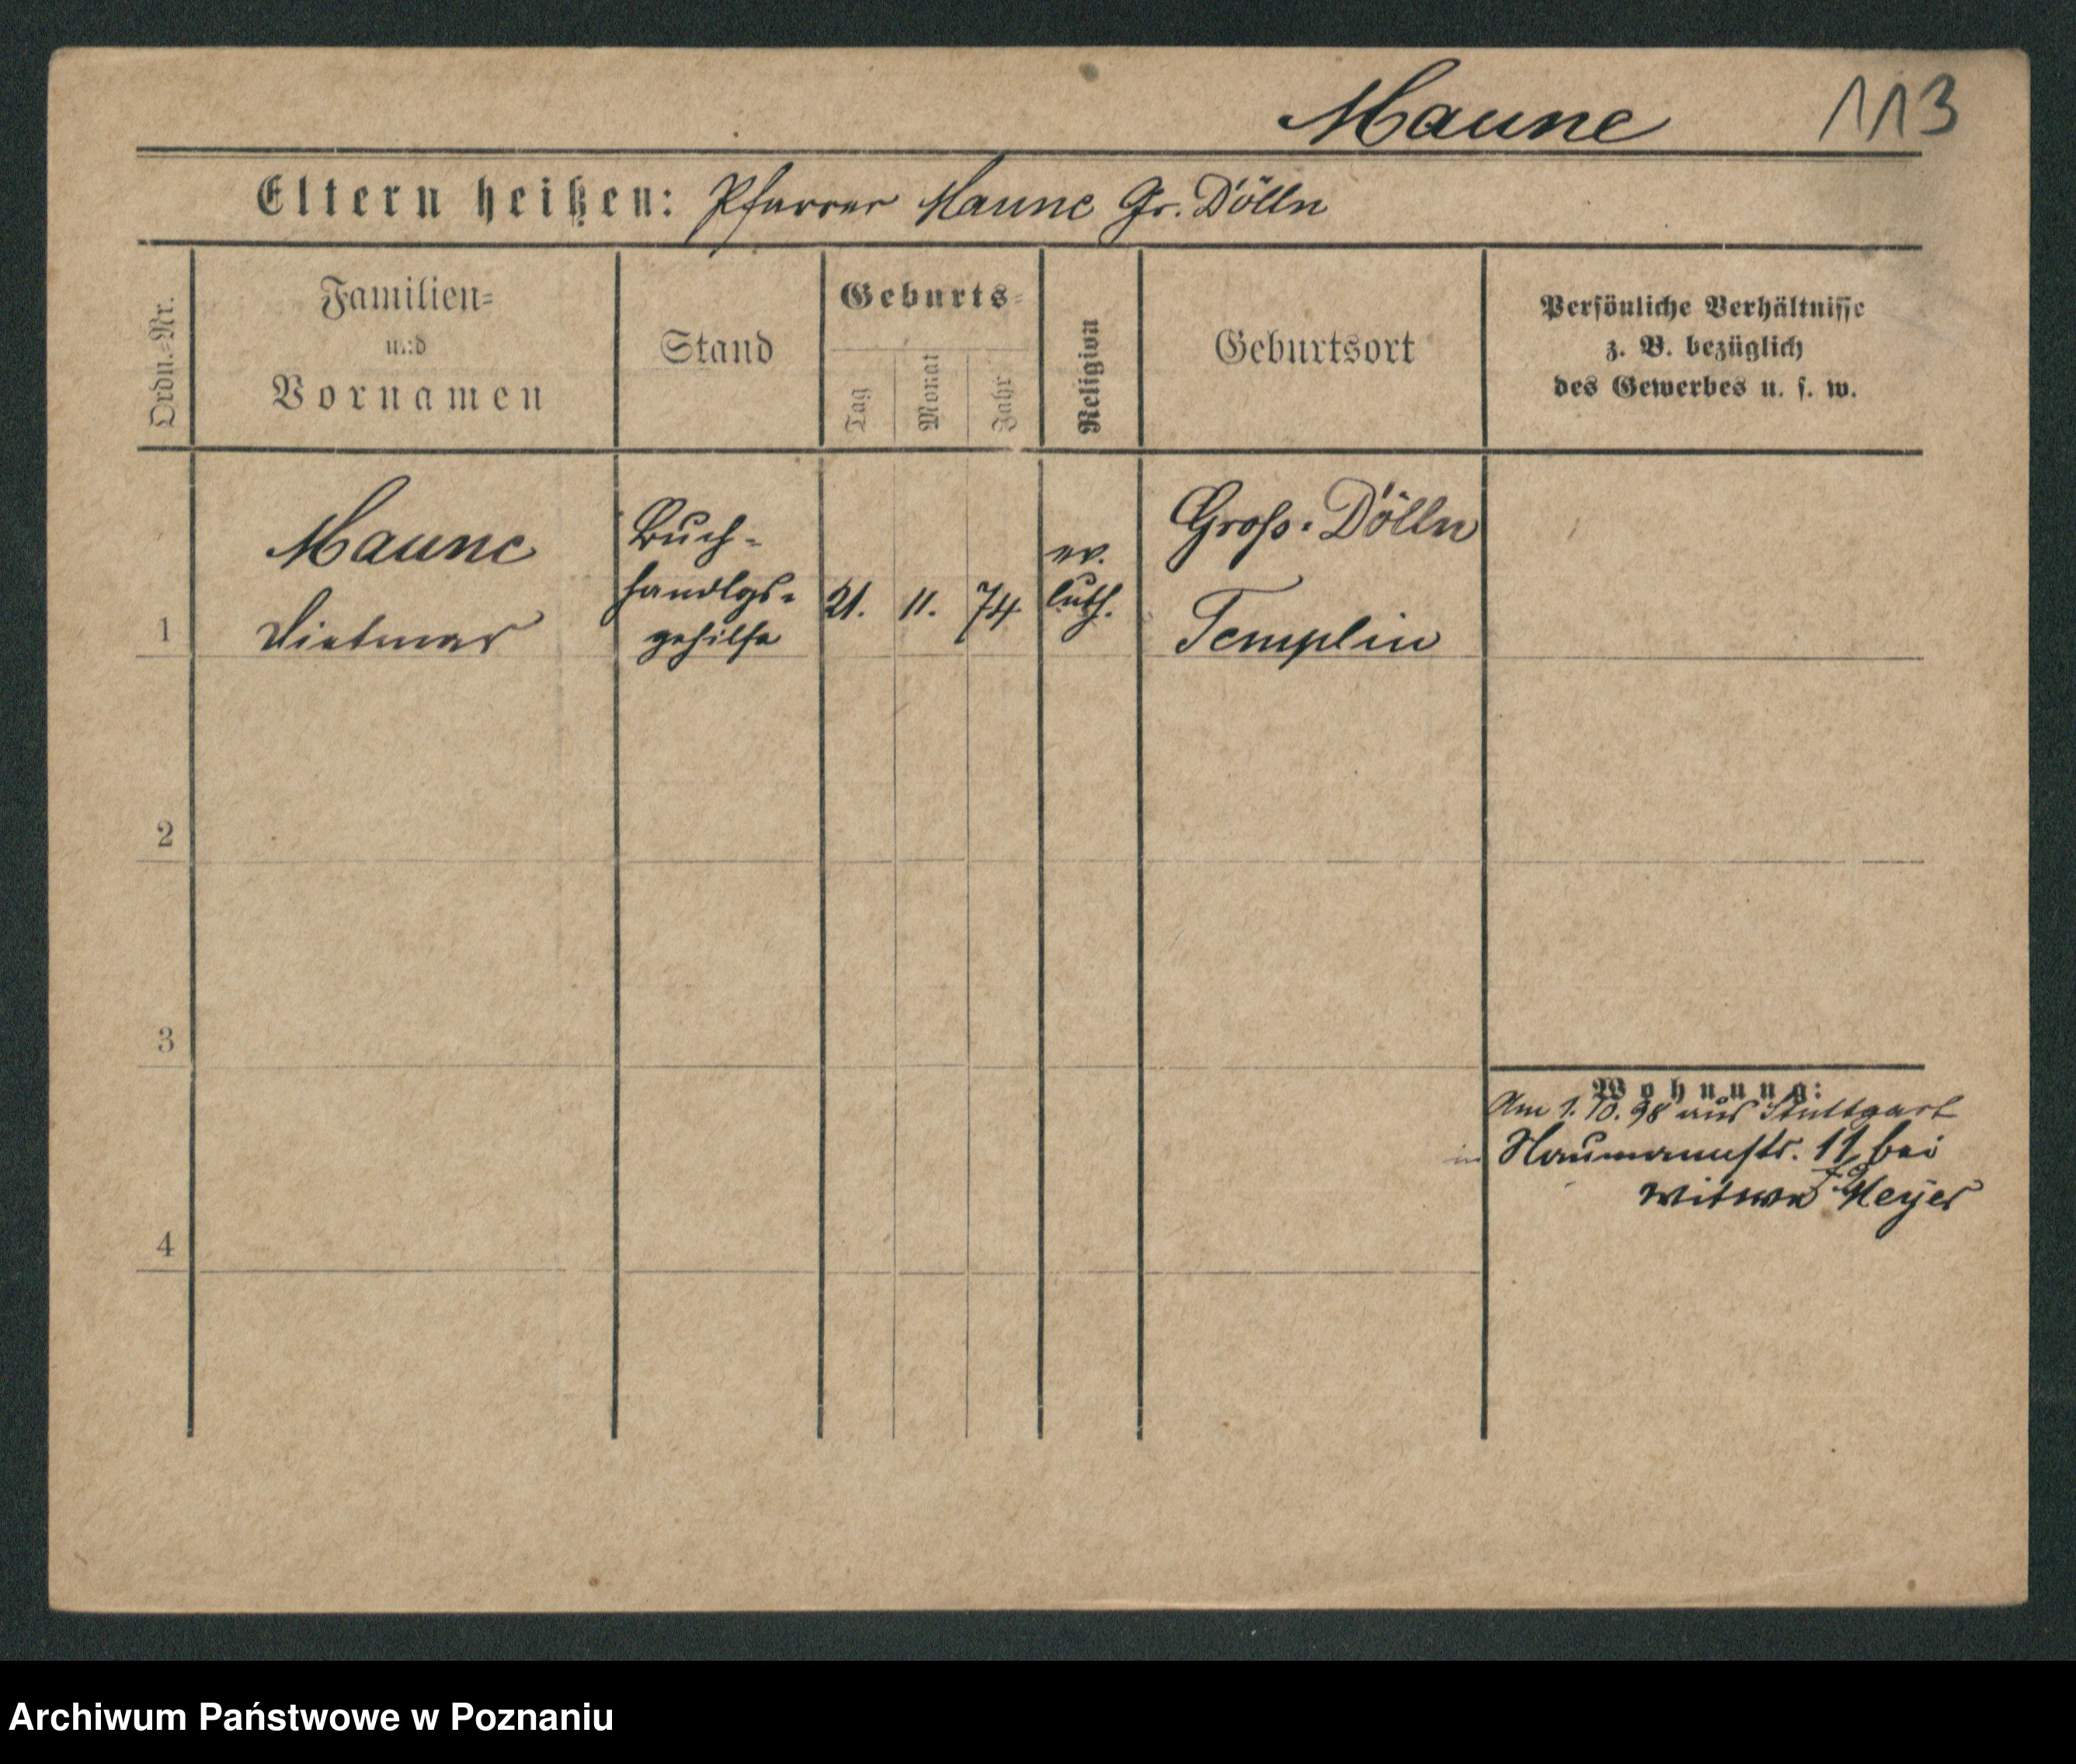 Maune 113
Eltern heißen: Pfarrer Maune Gr. Dölln
Ordn.-Nr.
Familien-
und
Vornamen
Stand
Geburts-
Tag
Monat
Jahr
Religion
Geburtsort
Persönliche Verhältnisse
z. B. bezüglich
des Gewerbes u. s. w.
1
Maune
Dietmar
Buch-
handlgs-
gehilfe
21. 11. 74
ev.
luth.
Groß-Dölln
Templin
2
3
4
Wohnung:
Am 1. 10. 98 aus Stuttgart
in Naumannstr. 11 bei
Witwe Meyer
Archiwum Państwowe w Poznaniu